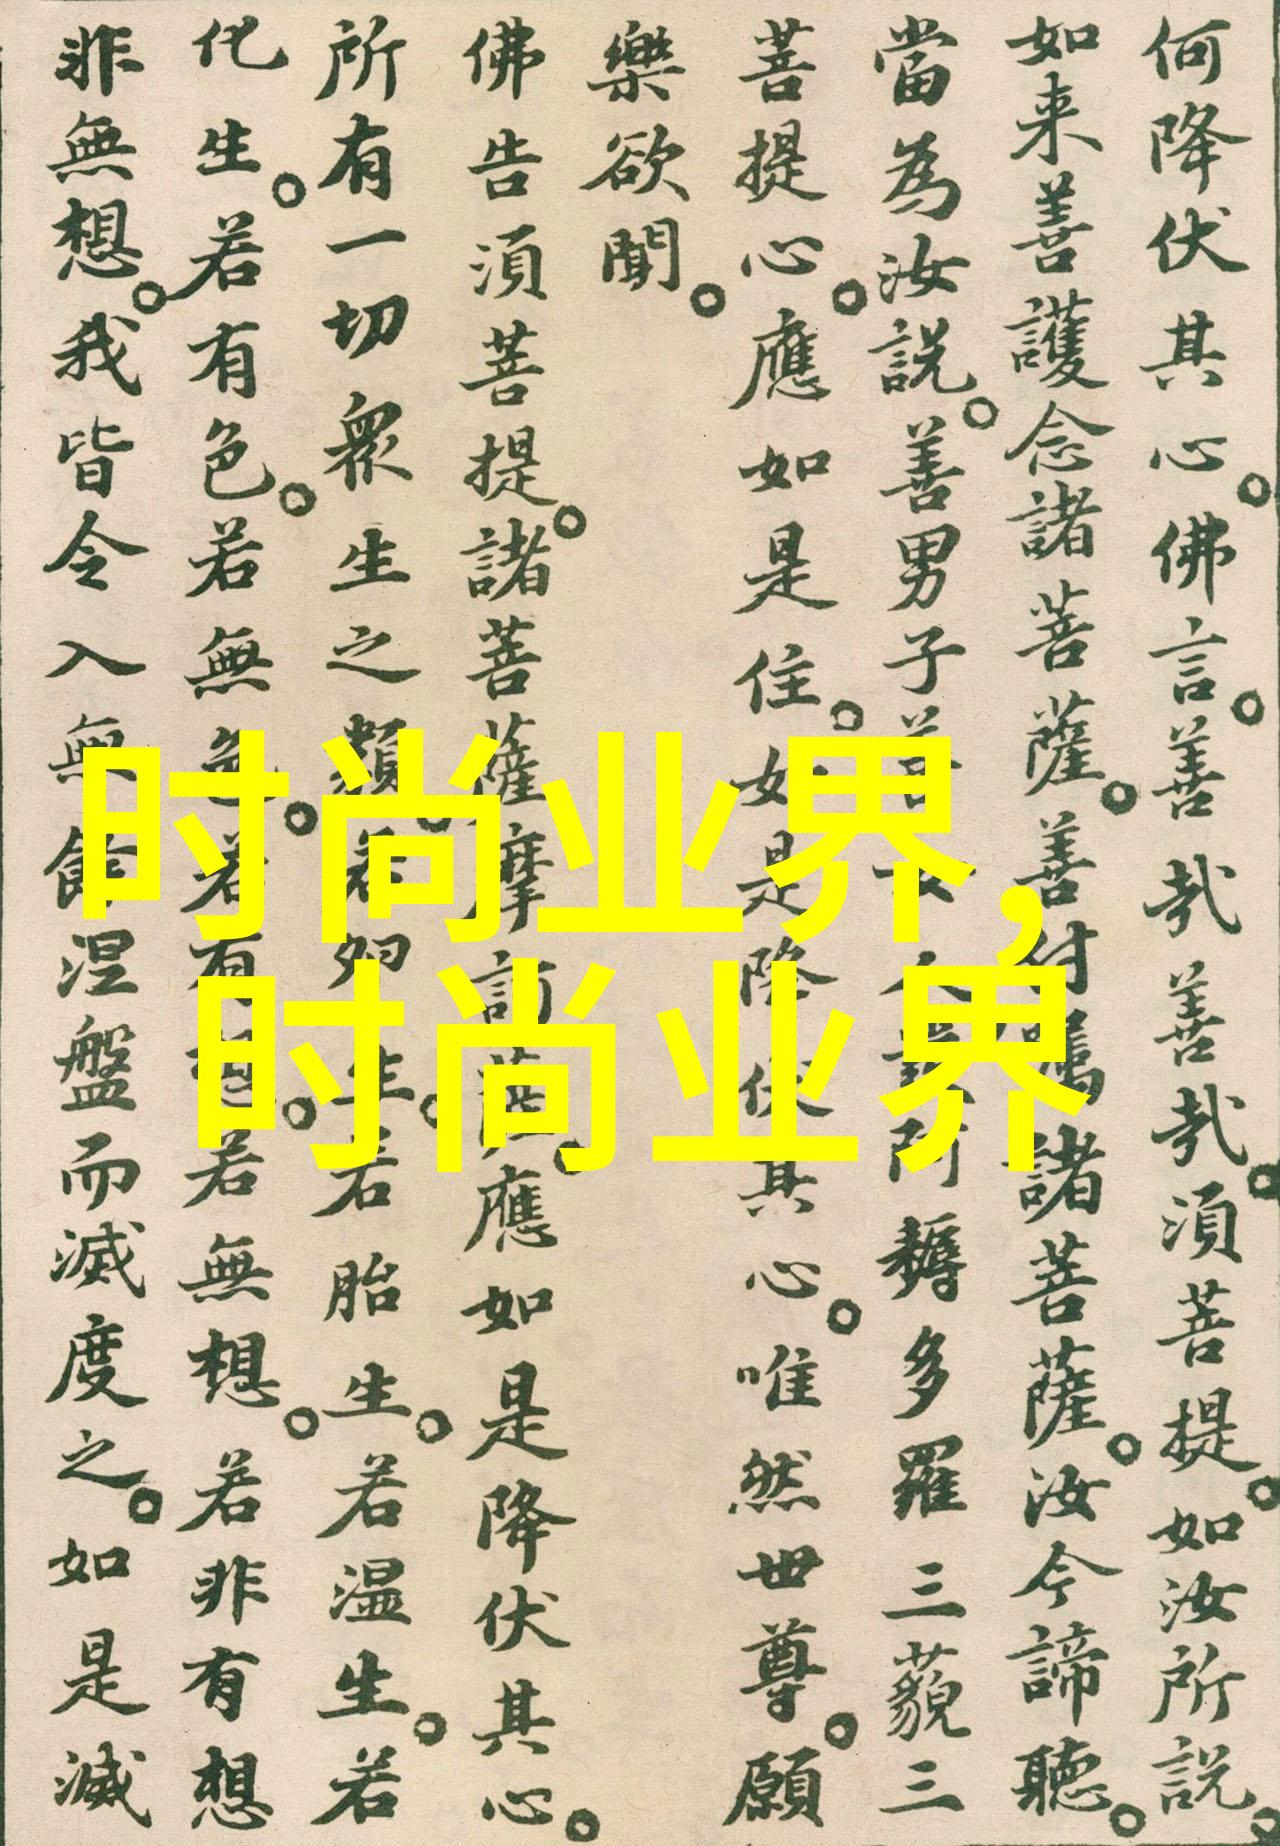 何降伏其心。佛言。善哉善哉。須菩提。如汝所説。
如来善護念諸菩薩。善付屬諸菩薩。汝今諦聽。
當為汝説。善男子善女人發阿耨多羅三藐三
菩提心。應如是住。如是降伏其心。唯然世尊。願
樂欲聞。
佛告須菩提。諸菩薩摩訶薩。應如是降伏其心。
所有一切衆生之類。若卵生。若胎生。若温生。若
化生。若有色。若無色。若有想。若無想。若非有想
非無想。我皆令入無餘涅盤而滅度之。如是滅
时尚业界，
时尚业界